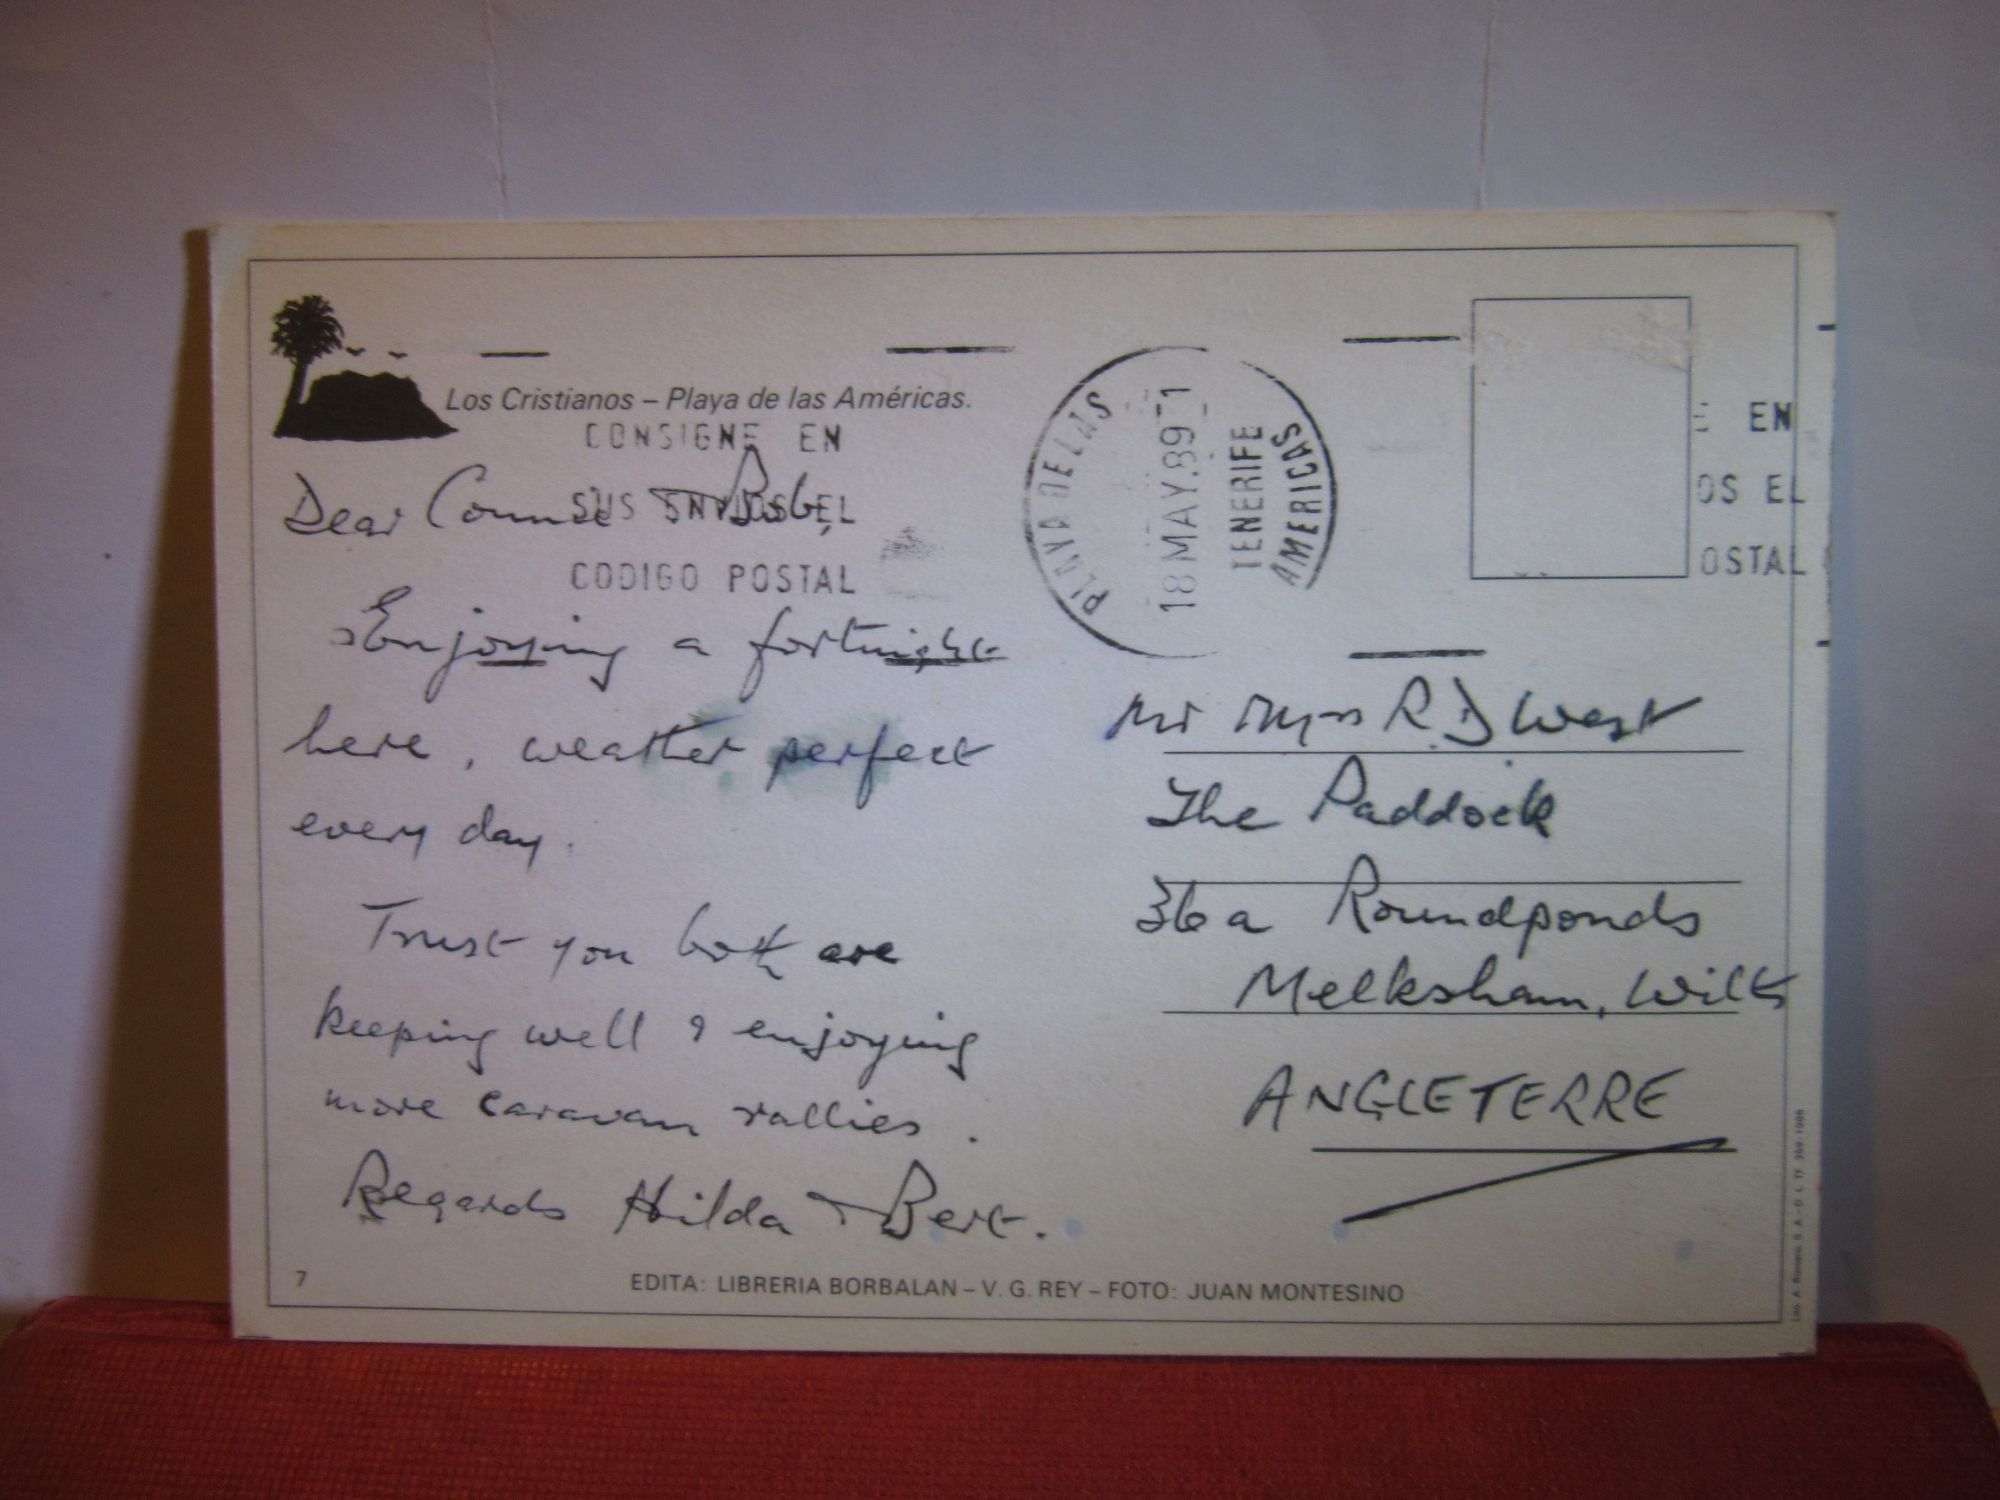 Los Cristianos – Playa de las Américas.
CONSIGNE EN
SUS ENVIOS EL
CODIGO POSTAL
PLAYA DE LAS AMERICAS
TENERIFE
18 MAY.89
E EN
OS EL
OSTAL
Dear Connie & Bob,
Enjoying a fortnight
here, weather perfect
every day.
Trust you both are
keeping well & enjoying
more caravan rallies.
Regards Hilda & Bert.
Mr Mrs R D West
The Paddock
36a Roundponds
Melksham, Wilts
ANGLETERRE
7
EDITA: LIBRERIA BORBALAN – V. G. REY – FOTO: JUAN MONTESINO